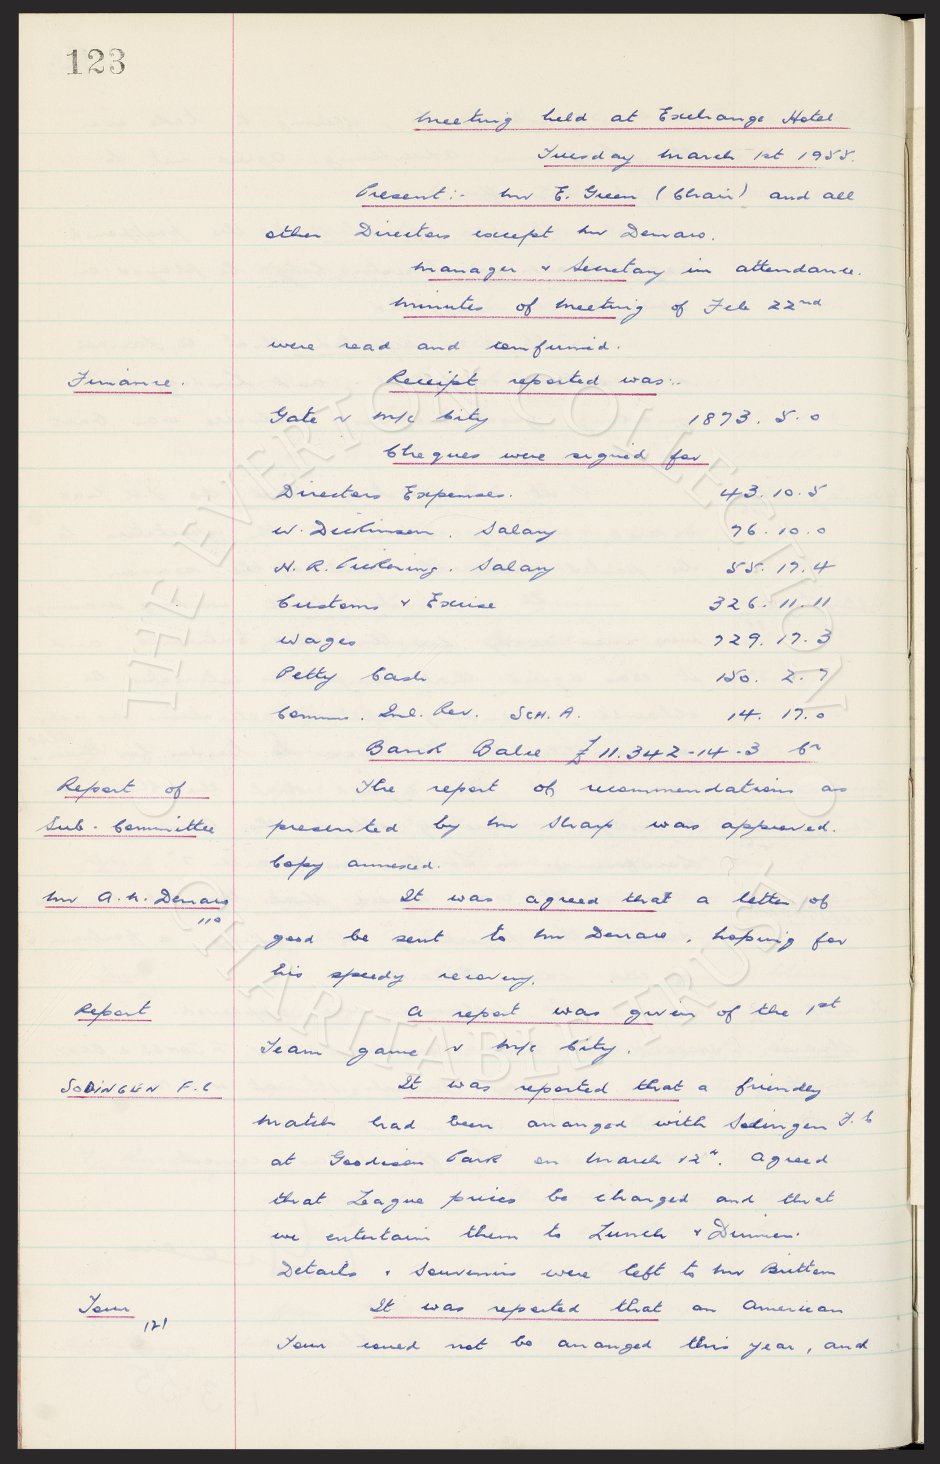 123
Meeting held at Exchange Hotel
Tuesday March 1st 1955.
Present:- Mr E. Green (Chair) and all
other Directors except Mr Denaro.
Manager & Secretary in attendance.
Minutes of Meeting of Feb 22nd
were read and confirmed.
Finance. Receipt reported was:-
Gate v M/c City 1873. 5. 0
Cheques were signed for
Directors Expenses. 43. 10. 5
W. Dickinson. Salary 76. 10. 0
H. R. Pickering. Salary 55. 17. 4
Customs & Excise 326. 11. 11
Wages 729. 17. 3
Petty Cash 150. 2. 7
Comms. Inl. Rev. SCH. A. 14. 17. 0
Bank Balce £11.342-14-3 Cr
Report of The report of recommendations as
Sub-Committee presented by Mr Sharp was approved.
Copy annexed.
Mr A. H. Denaro It was agreed that a letter of
110
good be sent to Mr Denaro, hoping for
his speedy recovery.
Report A report was given of the 1st
Team game v M/c City.
SODINGEN F.C It was reported that a friendly
Match had been arranged with Sodingen F.C
at Goodison Park on March 12th. Agreed
that League prices be charged and that
we entertain them to Lunch & Dinner.
Details & Souvenirs were left to Mr Britten
Tour It was reported that an American
121
Tour could not be arranged this year, and
THE EVERTON COLLECTION
CHARITABLE TRUST